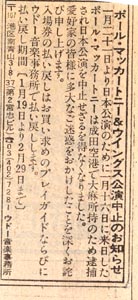 ポール・マッカートニー&ウイングス公演中止のお知らせ
一月二十一日より日本公演のために一月十六日に来日した
ポール・マッカートニーは成田空港で大麻所持のため逮捕
され日本公演を中止せざるを得なくなりました。
愛好者の皆様に多大なご迷惑をおかけしたことを深くお詫
び申し上げます。
お買い求めのプレイガイドならびに
ウドー音楽事務所で払い戻します。
払い戻し期間[1月19日より2月29日まで]
港区南青山3-8-37 第2宮忠ビル
☎03(402)7281 ウドー音楽事務所